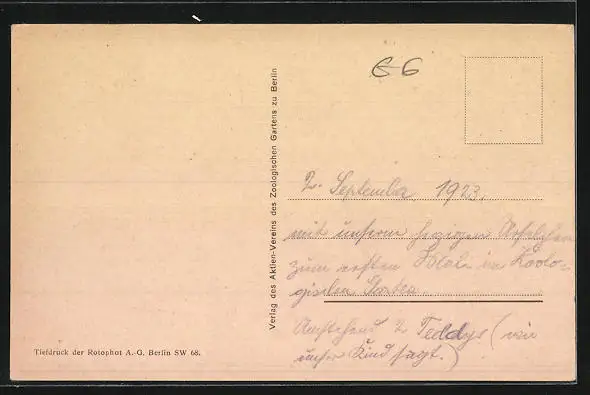 66
Verlag des Aktien-Vereins des Zoologischen Gartens zu Berlin
2. September 1923.
mit unserm
zum ersten Male im Zoolo-
gischen Garten.
2 Teddys (wie
unser Kind sagt.)
Tiefdruck der Rotophot A.-G. Berlin SW 68.